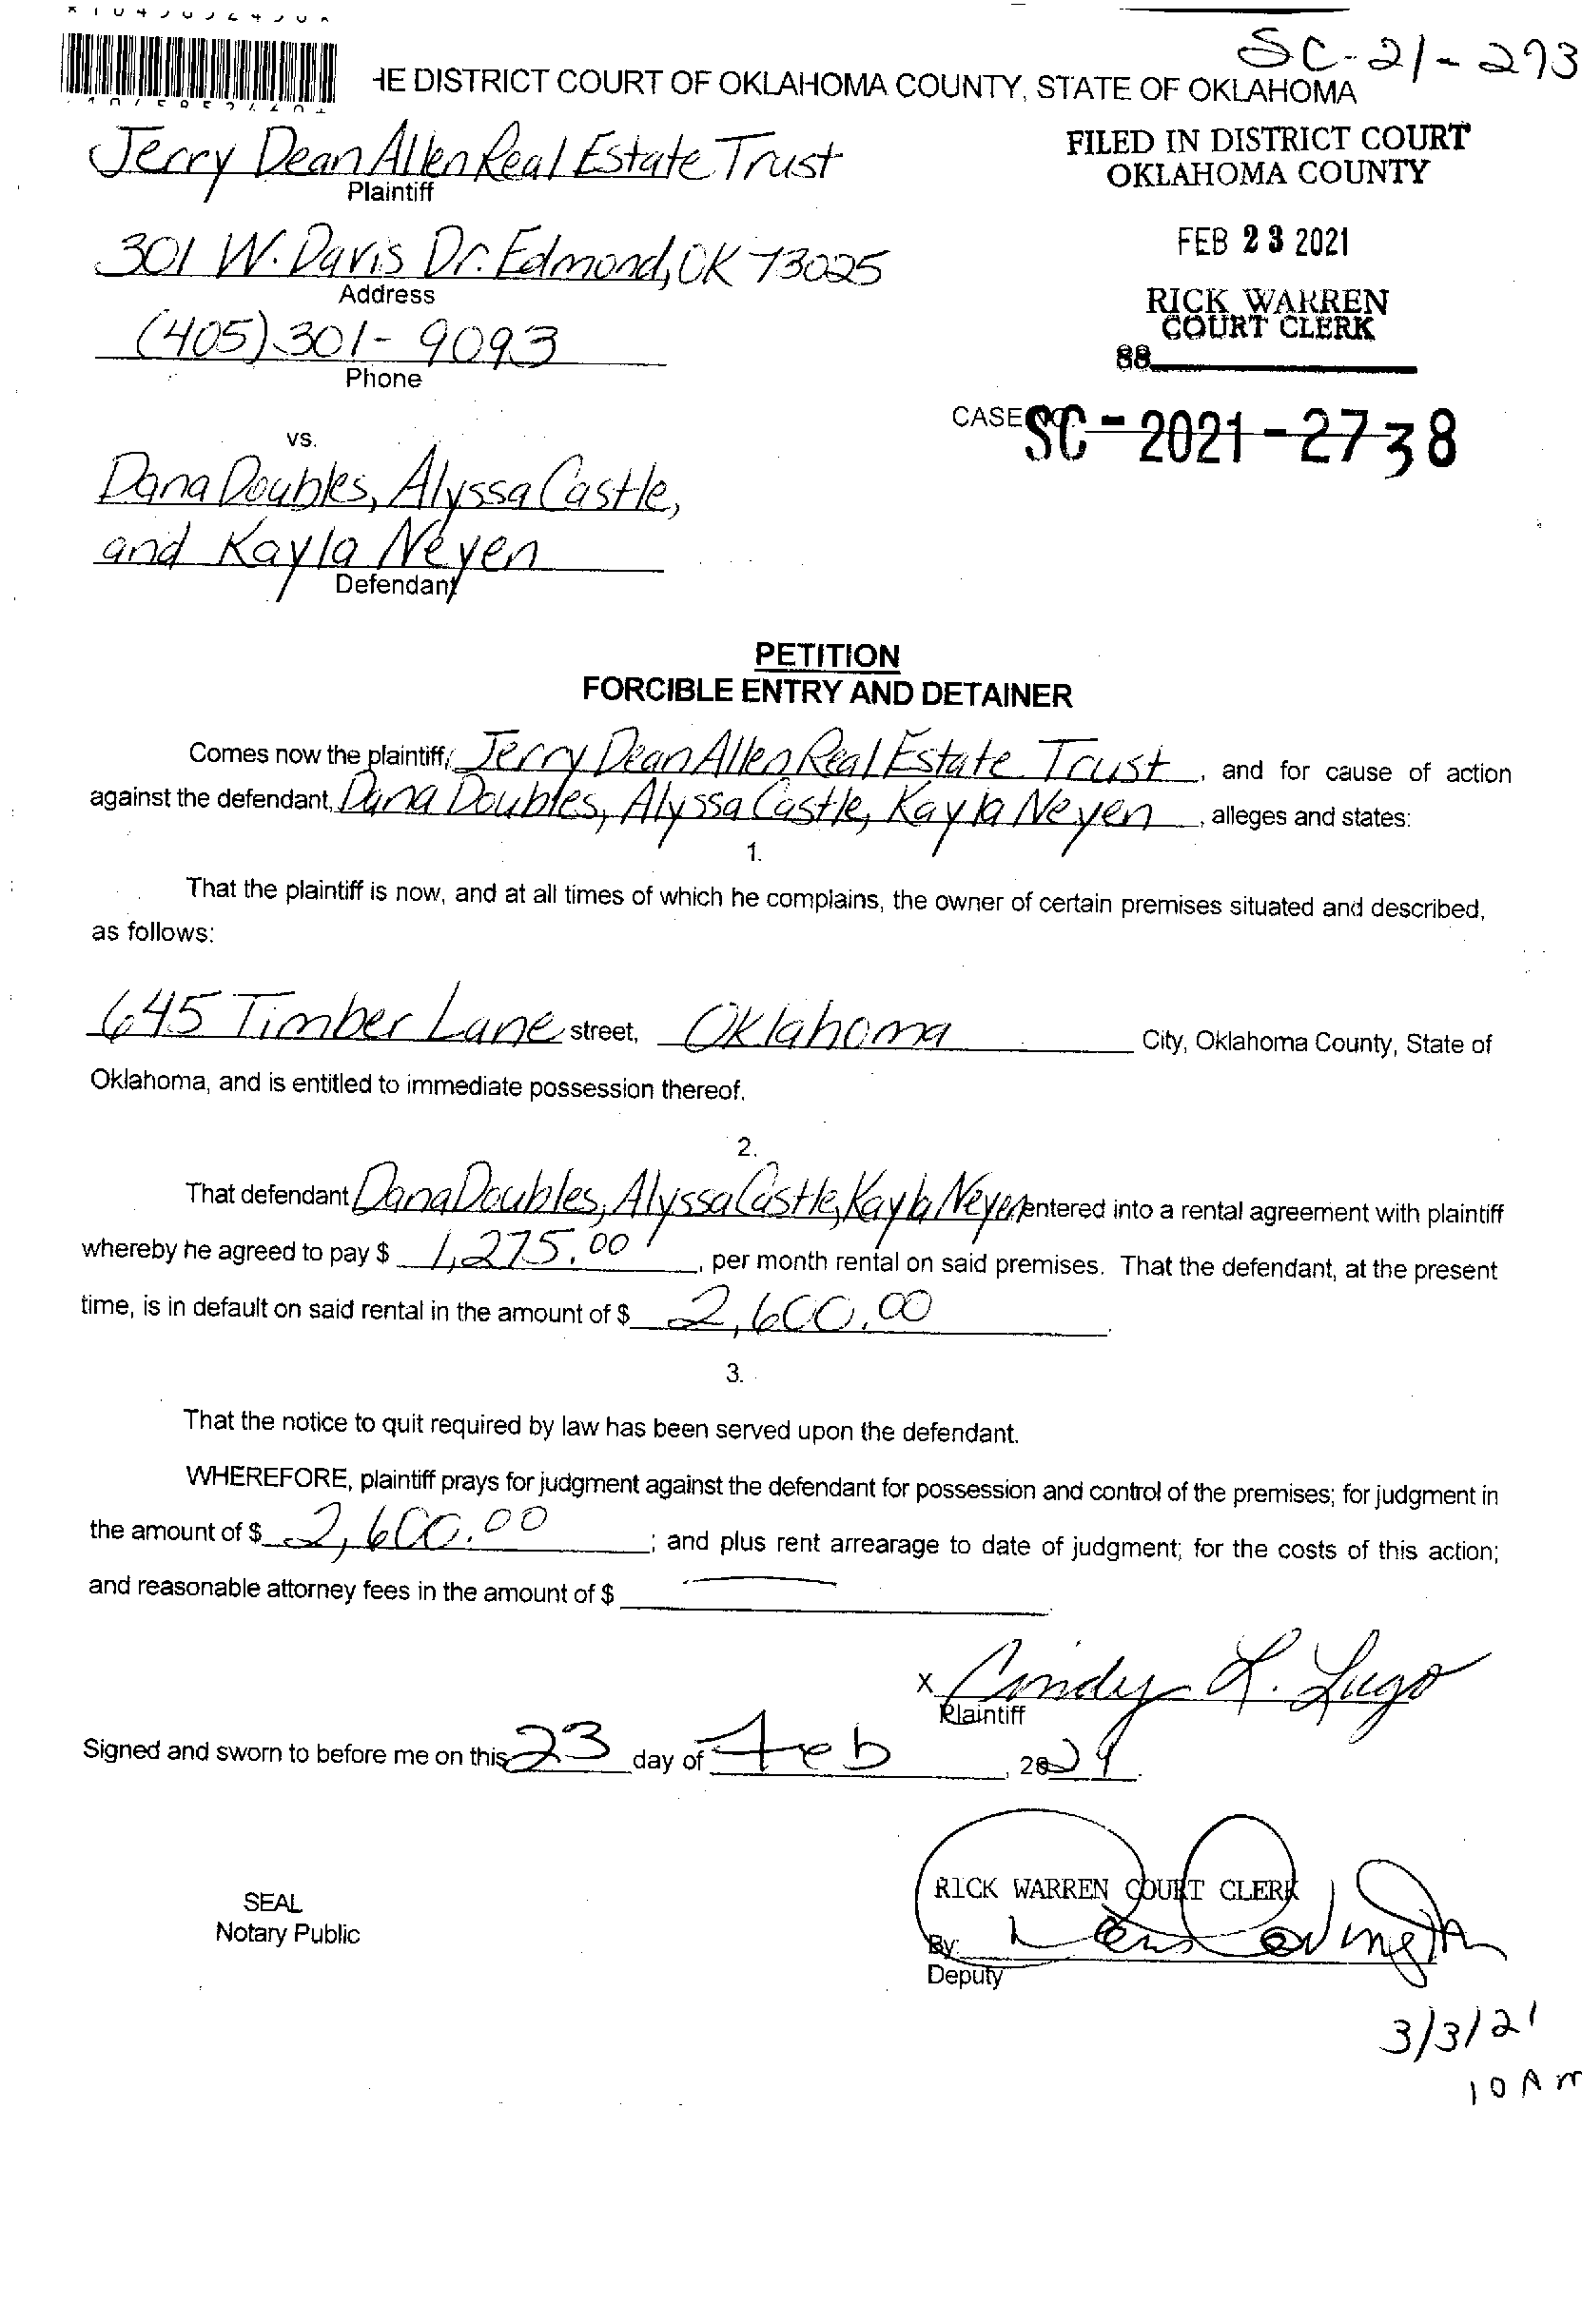 SC-21-293
HE DISTRICT COURT OF OKLAHOMA COUNTY, STATE OF OKLAHOMA
Jerry Dean Allen Real Estate Trust
Plaintiff
301 W. Davis Dr. Edmond, OK 73025
Address
(405) 301-9093
Phone
FILED IN DISTRICT COURT
OKLAHOMA COUNTY
FEB 23 2021
RICK WARREN
COURT CLERK
88
CASE NO. SC-2021-2738
vs.
Dana Doubles, Alyssa Castle,
and Kayla Neyen
Defendant
PETITION
FORCIBLE ENTRY AND DETAINER
Comes now the plaintiff, Jerry Dean Allen Real Estate Trust, and for cause of action
against the defendant, Dana Doubles, Alyssa Castle, Kayla Neyen, alleges and states:
1.
That the plaintiff is now, and at all times of which he complains, the owner of certain premises situated and described,
as follows:
645 Timber Lane street, Oklahoma City, Oklahoma County, State of
Oklahoma, and is entitled to immediate possession thereof.
2.
That defendant Dana Doubles, Alyssa Castle, Kayla Neyen entered into a rental agreement with plaintiff
whereby he agreed to pay $ 1,275.00, per month rental on said premises. That the defendant, at the present
time, is in default on said rental in the amount of $ 2,600.00.
3.
That the notice to quit required by law has been served upon the defendant.
WHEREFORE, plaintiff prays for judgment against the defendant for possession and control of the premises; for judgment in
the amount of $ 2,600.00; and plus rent arrearage to date of judgment; for the costs of this action;
and reasonable attorney fees in the amount of $ —.
x Cindy L. Lugo
Plaintiff
Signed and sworn to before me on this 23 day of Feb, 2021.
RICK WARREN COURT CLERK
SEAL
Notary Public
By:
Deputy
3/3/21
10 Am